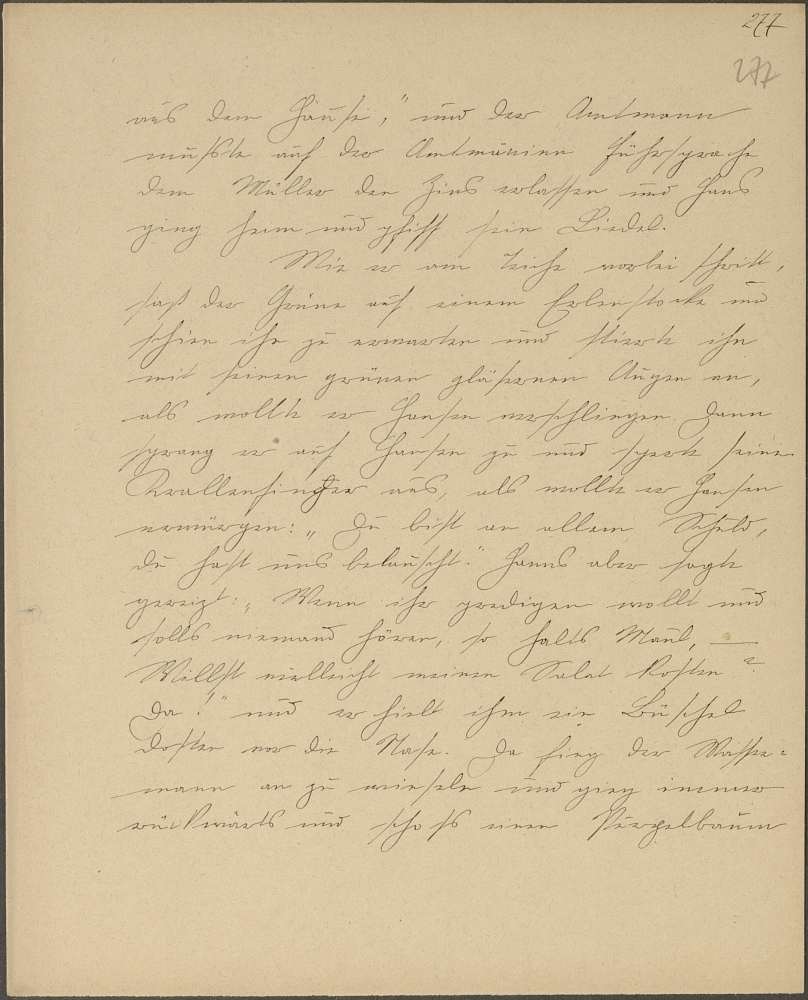 277
277
aus dem Hause," und der Amtmann
mußste auf der Amtmännin Führsprache
dem Müller den Zins erlassen und Hans
ging heim und pfiff sein Liedel.
Wie er am Teiche vorbei schritt,
saß der Grüne auf einem Erlenstocke und
schien ihn zu erwarten und stierte ihn
mit seinen grünen gläsernen Augen an,
als wollte er Hansen verschlingen. Dann
sprang er auf Hansen zu und sperte seine
Krallenfinger aus, als wollte er Hansen
erwürgen: „Du bist an allem Schuld,
du hast uns belauscht." Hanns aber sagte
gereizt: „Wenn ihr predigen wollt und
solls niemand hören, so halts Maul, —
Willst vielleicht meinen Salat kosten?
Da!" und er hielt ihm ein Büschel
Dosten vor die Nase. Da fing der Wasser=
mann an zu winseln und ging immer
rückwärts und schoss einen Purzelbaum